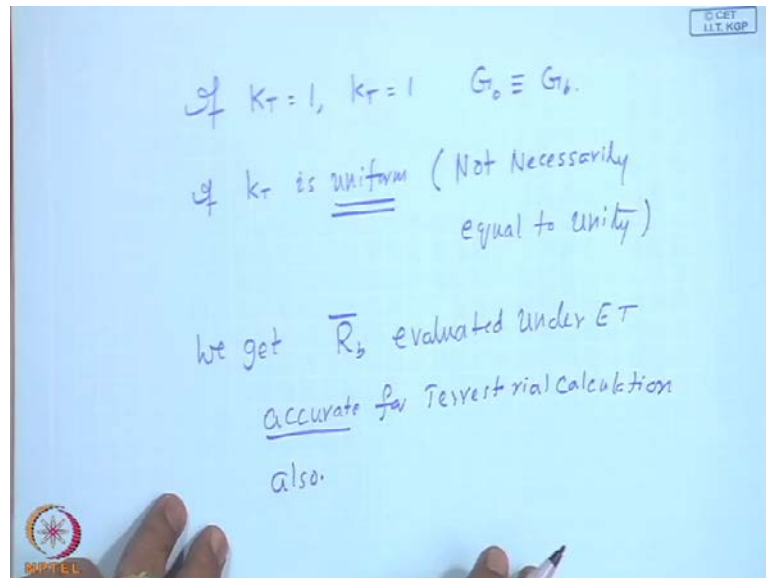 © CET
I.I.T. KGP
If K_T = 1, k_T = 1 G_o ≡ G_b.
If k_T is uniform (Not Necessarily
equal to unity)
We get R̅_b evaluated under ET
accurate for Terrestrial calculation
also.
NPTEL